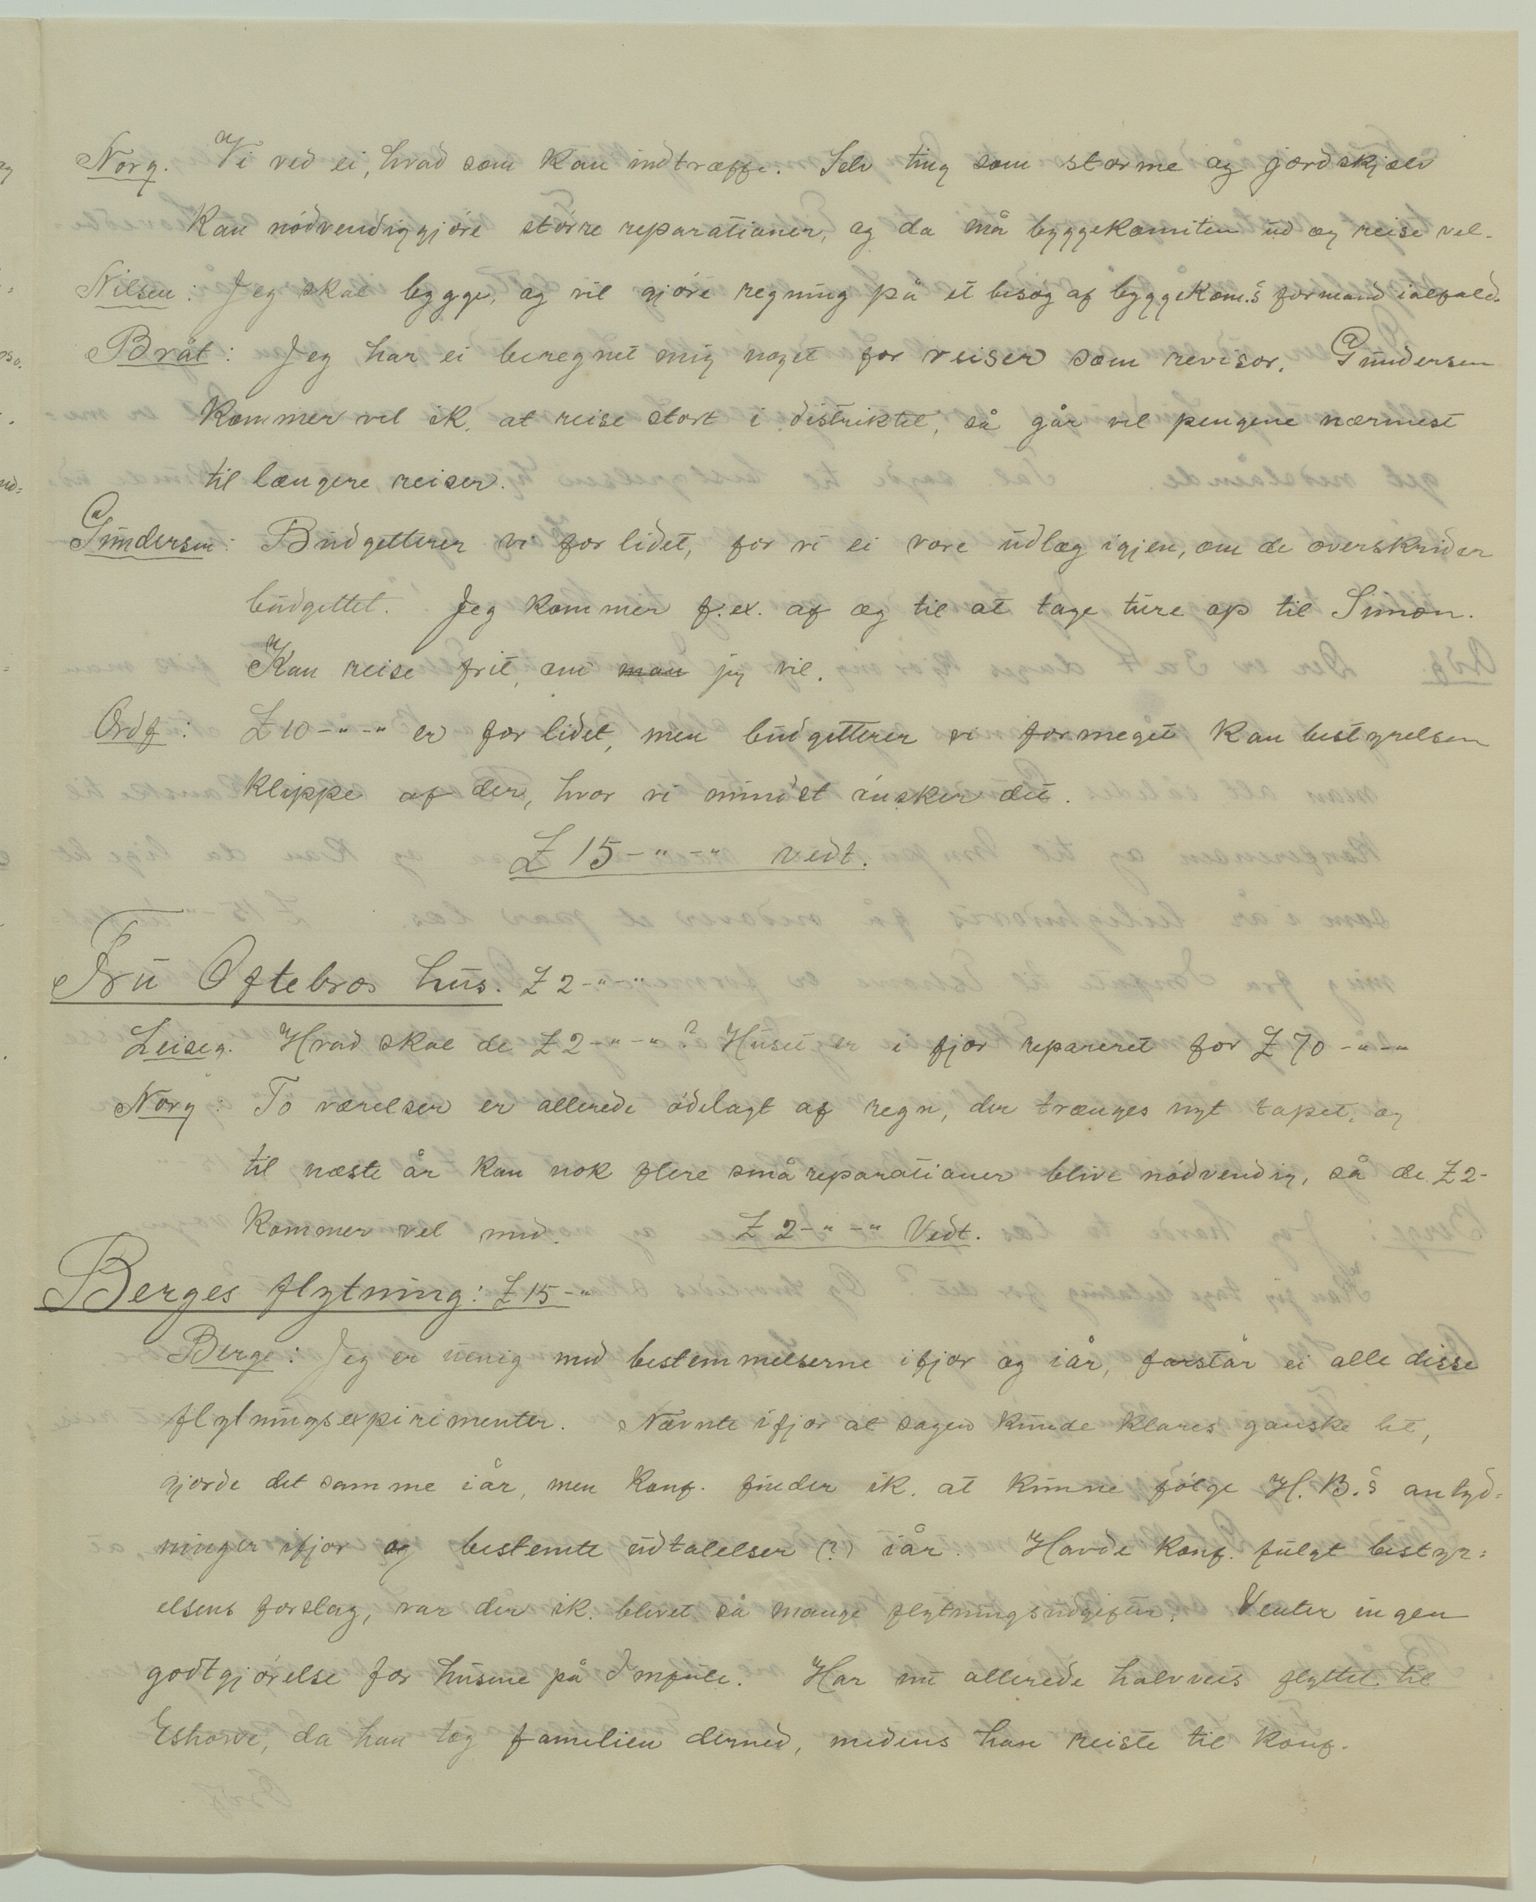 Norg. Vi ved ei, hvad som kan indtræffe. Selv ting som storme og jordskjælv
kan nödvendiggjöre större reparationer, og da må byggekomiteen ud og reise vel.
Nilsen: Jeg skal bygge, og vil gjöre regning på et besög af byggekom.s formand ialfald.
Bråt: Jeg har ei beregnet mig noget for reiser som revisor. Gundersen
kommer vel ik. at reise stort i distriktet, så går vel pengene nærmest
til længere reiser.
Gundersen: Budgetterer vi for lidet, får vi ei vore udlæg igjen, om de overskrider
budgettet. Jeg kommer f.ex. af og til at tage ture op til Simon.
Kan reise frit, om man jeg vil.
Ordf: £ 10-"-" er for lidet, men budgetterer vi formeget kan bestyrelsen
klippe af der, hvor vi mindst önsker det.
£ 15-"-" vedt.
Fru Oftebros hus. £ 2-"-"
Leiseg. Hvad skal de £ 2-"-"? Huset er i fjor repareret for £ 70-"-"
Norg: To værelser er allerede ödelagt af regn, der trænges nyt tapet, og
til næste år kan nok flere små reparationer blive nödvendig, så de £ 2-
kommer vel med. £ 2-"-" Vedt.
Berges flytning: £ 15-"
Berge: Jeg er uenig med bestemmelserne ifjor og iår, forstår ei alle disse
flytningsexpirimenter. Nævnte ifjor at sagen kunde klares ganske let,
gjorde det samme iår, men konf. finder ik. at kunne fölge H. B.s antyd=
ninger ifjor og bestemte udtalelser (?) iår. Havde konf. fulgt bestyr=
elsens forslag, var der ik. blevet så mange flytningsudgifter. Venter ingen
godtgjörelse for husene på Imfule. Har nu allerede halvveis flyttet til
Eshowe, da han tog familien derned, medens han reiste til konf.